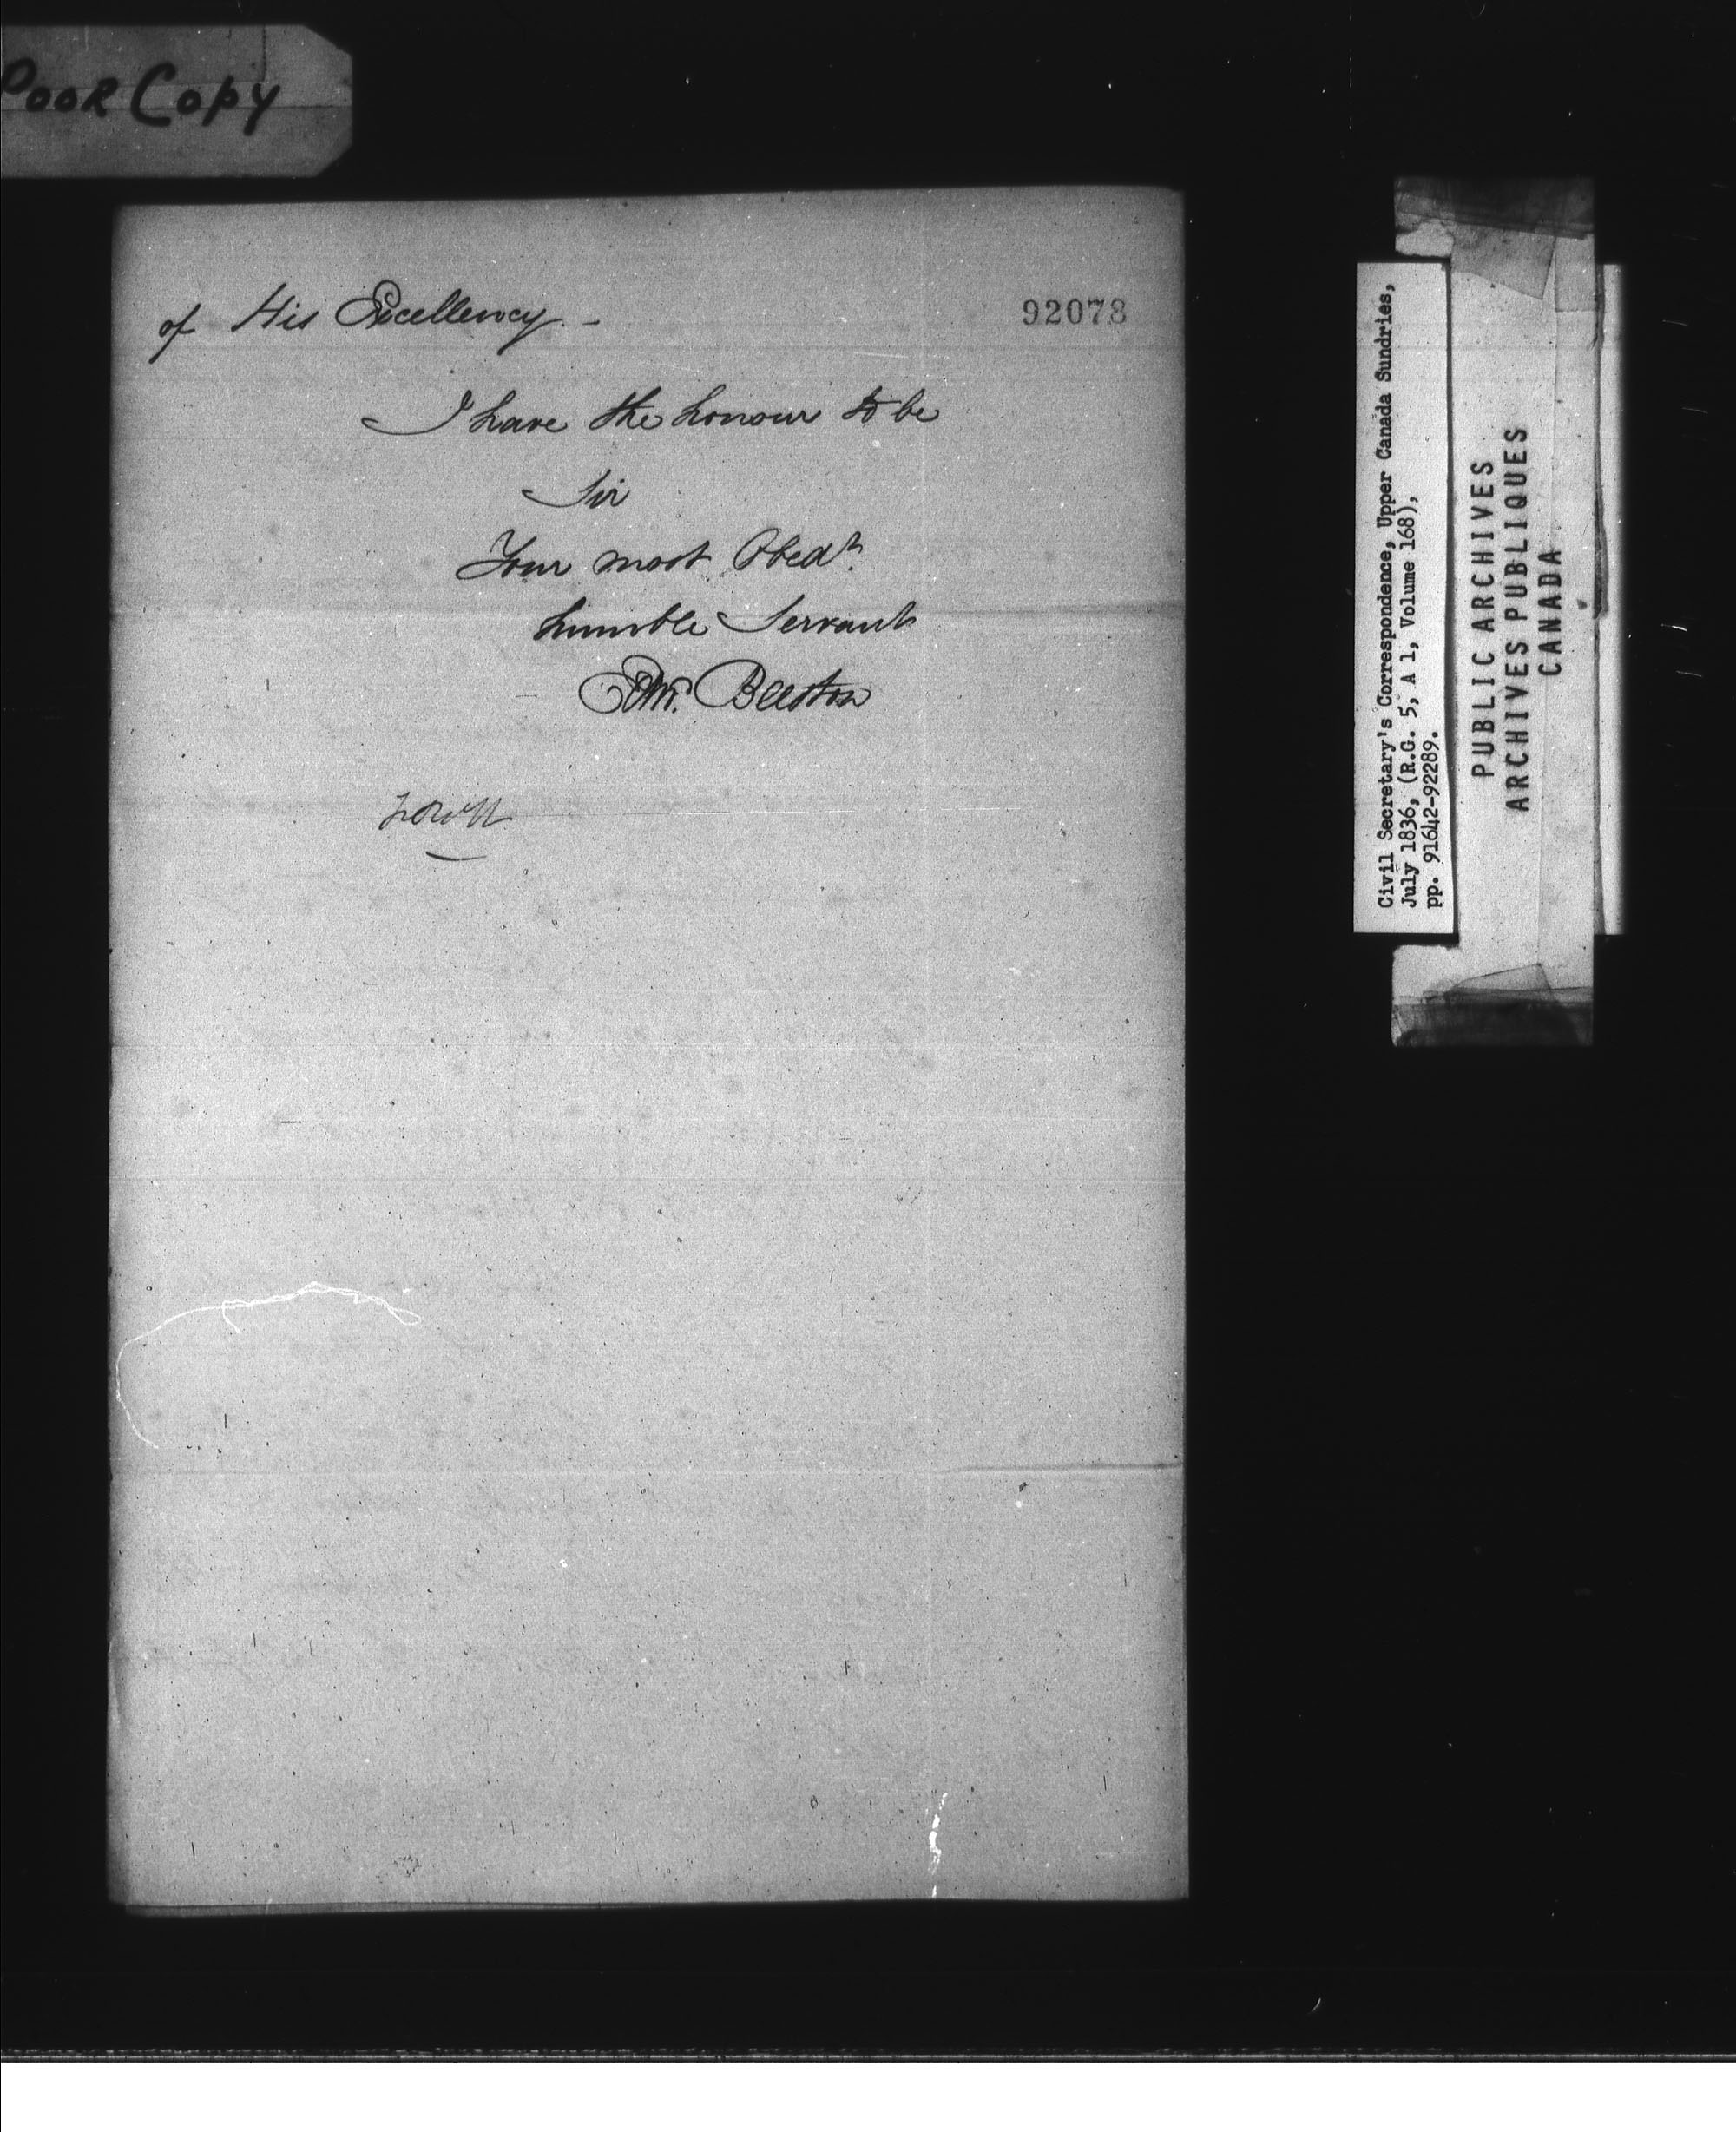 Poor Copy
92078
of His Excellency. -
I have the honour to be
Sir
Your most Obedt.
humble Servant
Beeston
Civil Secretary's Correspondence, Upper Canada Sundries,
July 1836, (R.G. 5, A 1, Volume 168),
pp. 91642-92289.
PUBLIC ARCHIVES
ARCHIVES PUBLIQUES
CANADA